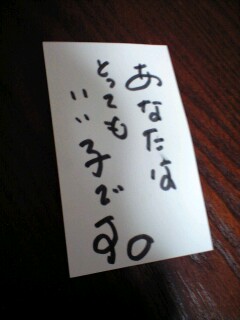 あなたは
とっても
いい子です。